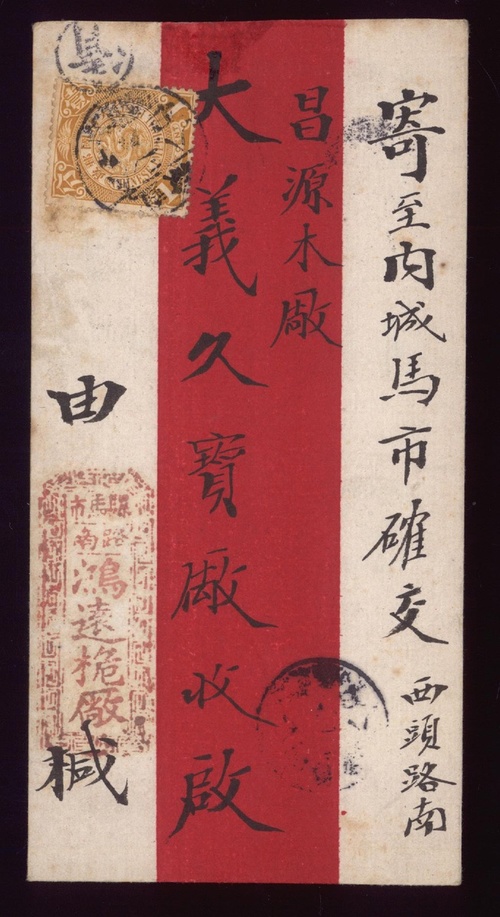 寄至内城馬市確交
西頭路南
昌源木廠
大義久寶廠收啟
由
騾馬市
路南
鴻遠桅廠
椷